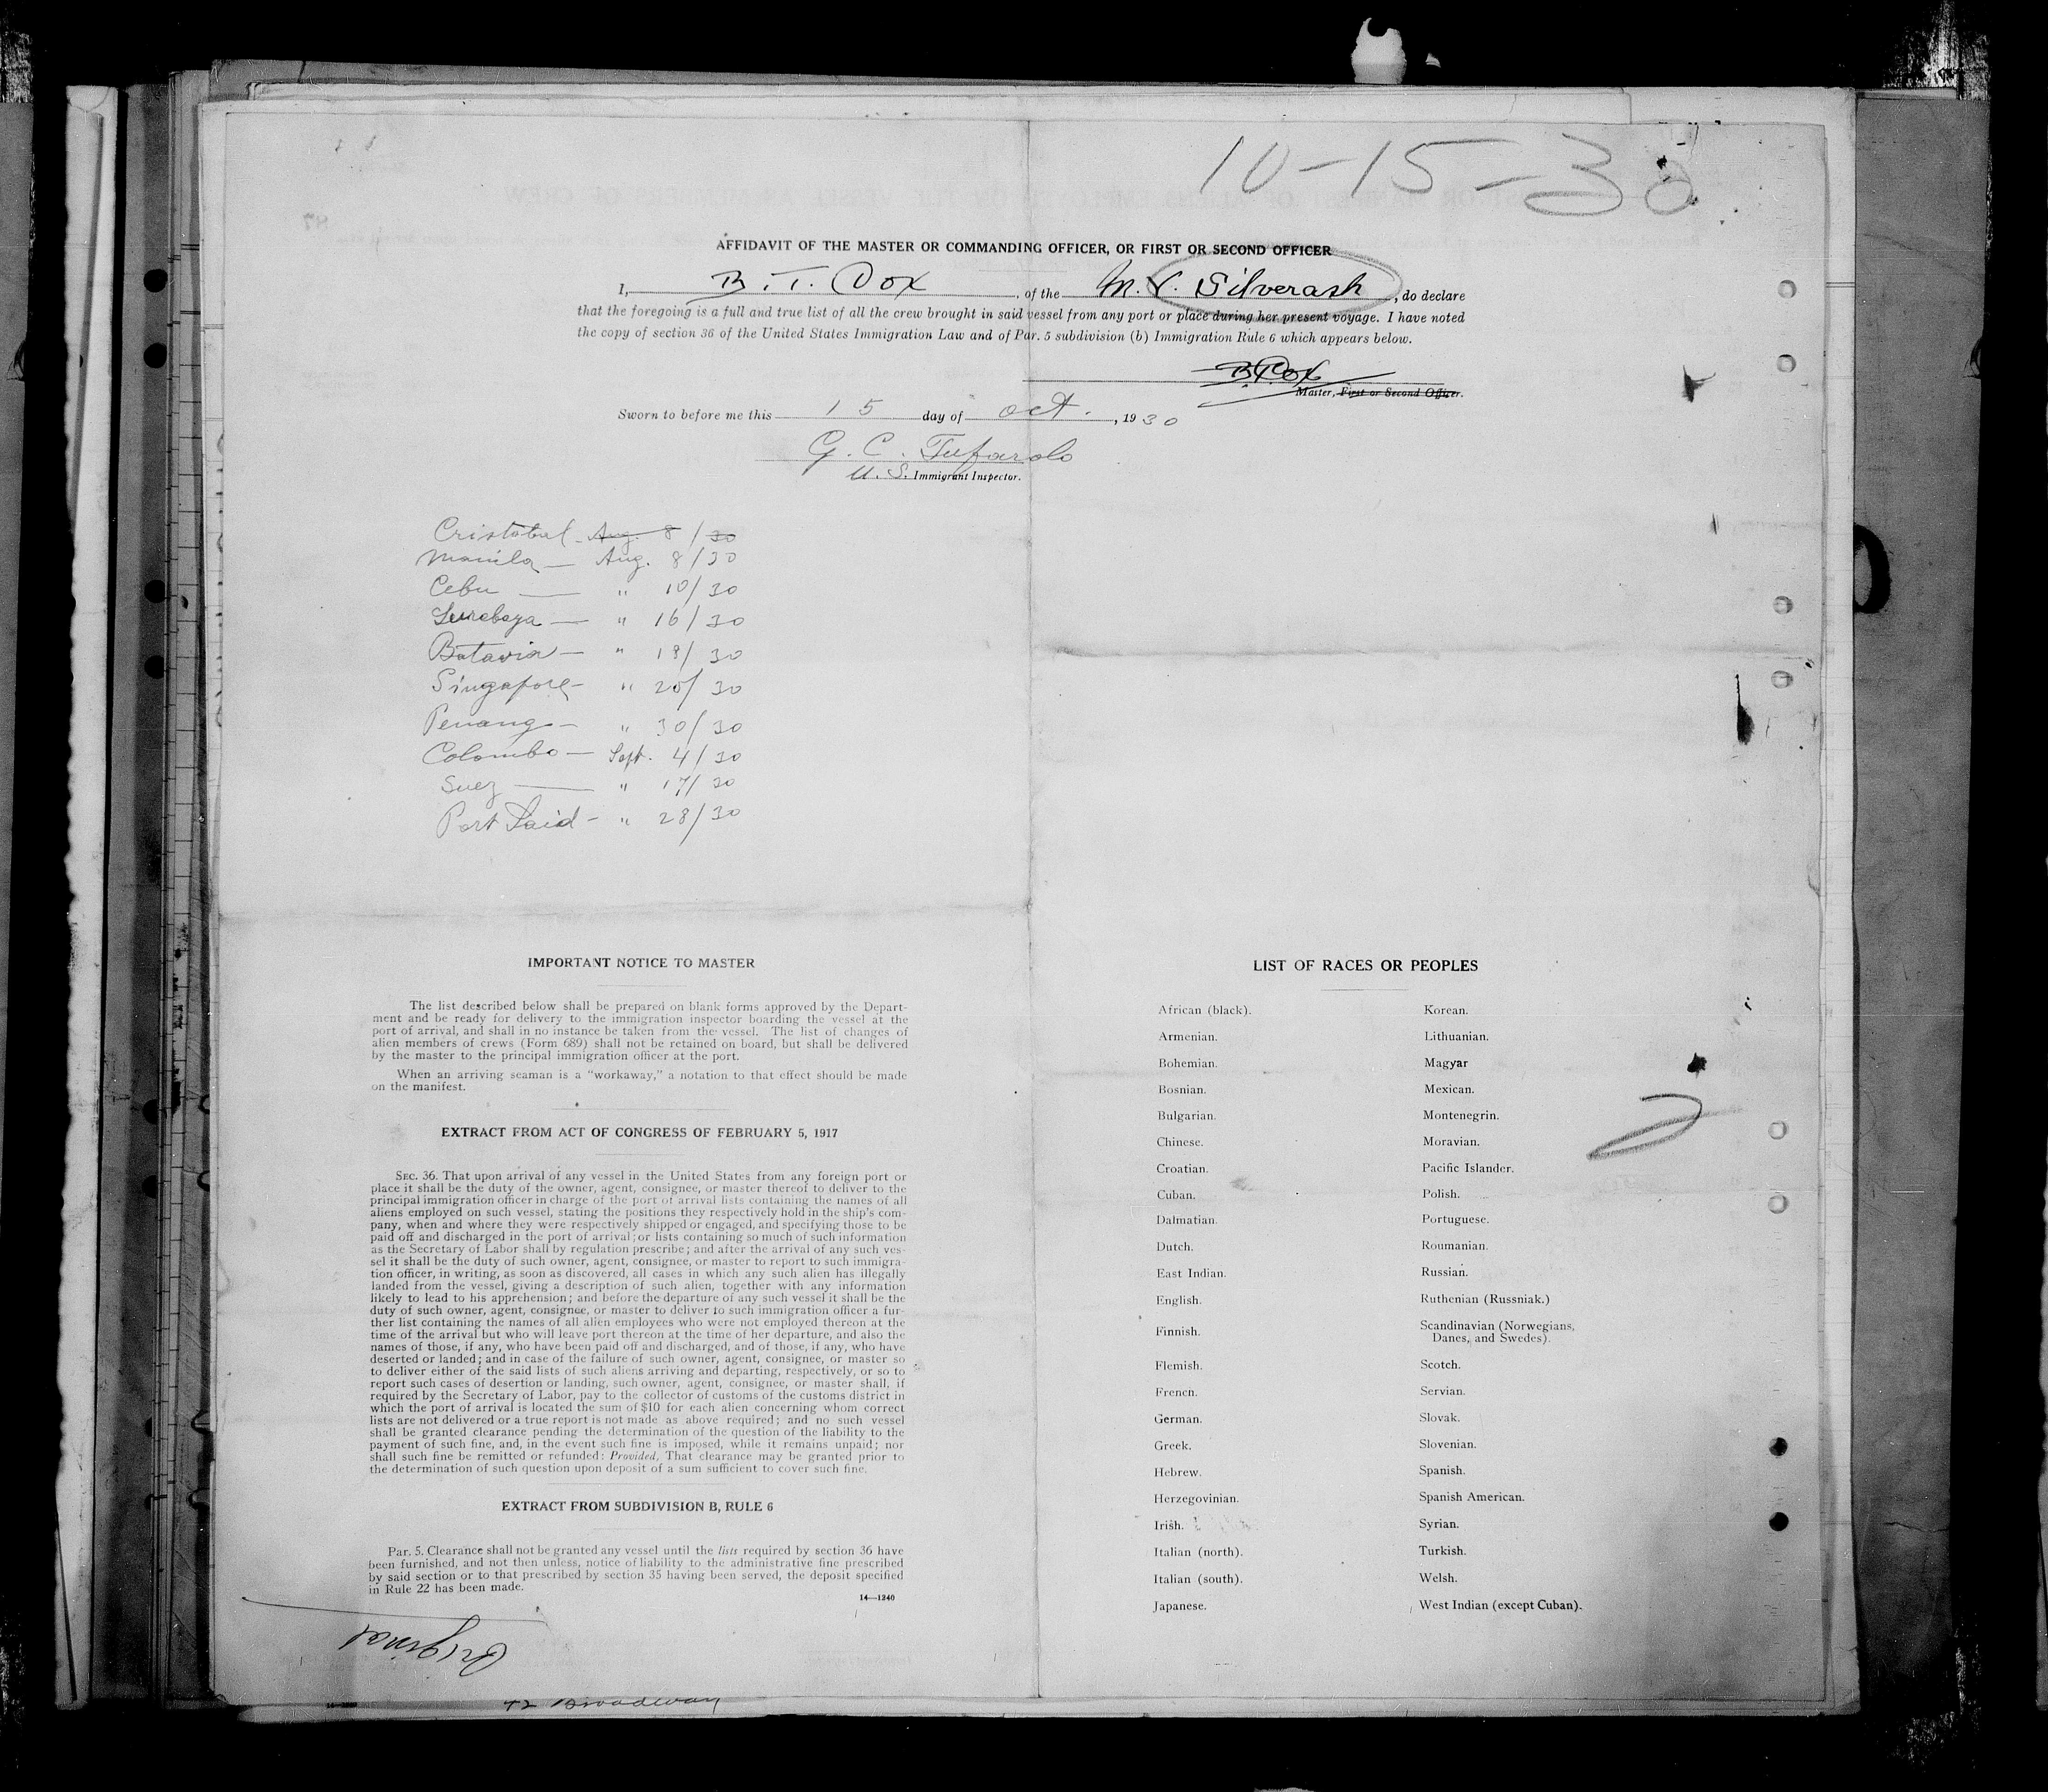 10-15-30
AFFIDAVIT OF THE MASTER OR COMMANDING OFFICER, OR FIRST OR SECOND OFFICER
I, B. T. Cox, of the M.V. Silverash, do declare
that the foregoing is a full and true list of all the crew brought in said vessel from any port or place during her present voyage. I have noted
the copy of section 36 of the United States Immigration Law and of Par. 5 subdivision (b) Immigration Rule 6 which appears below.
B.T. Cox
Master, First or Second Officer.
Sworn to before me this 15 day of Oct., 1930
G. C. Tufarolo
U. S. Immigrant Inspector.
Cristobal - Aug. 8/30
Manila — Aug. 8/30
Cebu — " 10/30
Surabaya — " 16/30
Batavia — " 18/30
Singapore - " 20/30
Penang - " 30/30
Colombo — Sept. 4/30
Suez — " 17/30
Port Said - " 28/30
IMPORTANT NOTICE TO MASTER
The list described below shall be prepared on blank forms approved by the Depart-
ment and be ready for delivery to the immigration inspector boarding the vessel at the
port of arrival, and shall in no instance be taken from the vessel. The list of changes of
alien members of crews (Form 689) shall not be retained on board, but shall be delivered
by the master to the principal immigration officer at the port.
When an arriving seaman is a “workaway,” a notation to that effect should be made
on the manifest.
EXTRACT FROM ACT OF CONGRESS OF FEBRUARY 5, 1917
SEC. 36. That upon arrival of any vessel in the United States from any foreign port or
place it shall be the duty of the owner, agent, consignee, or master thereof to deliver to the
principal immigration officer in charge of the port of arrival lists containing the names of all
aliens employed on such vessel, stating the positions they respectively hold in the ship's com-
pany, when and where they were respectively shipped or engaged, and specifying those to be
paid off and discharged in the port of arrival; or lists containing so much of such information
as the Secretary of Labor shall by regulation prescribe; and after the arrival of any such ves-
sel it shall be the duty of such owner, agent, consignee, or master to report to such immigra-
tion officer, in writing, as soon as discovered, all cases in which any such alien has illegally
landed from the vessel, giving a description of such alien, together with any information
likely to lead to his apprehension; and before the departure of any such vessel it shall be the
duty of such owner, agent, consignee, or master to deliver to such immigration officer a fur-
ther list containing the names of all alien employees who were not employed thereon at the
time of the arrival but who will leave port thereon at the time of her departure, and also the
names of those, if any, who have been paid off and discharged, and of those, if any, who have
deserted or landed; and in case of the failure of such owner, agent, consignee, or master so
to deliver either of the said lists of such aliens arriving and departing, respectively, or so to
report such cases of desertion or landing, such owner, agent, consignee, or master shall, if
required by the Secretary of Labor, pay to the collector of customs of the customs district in
which the port of arrival is located the sum of $10 for each alien concerning whom correct
lists are not delivered or a true report is not made as above required; and no such vessel
shall be granted clearance pending the determination of the question of the liability to the
payment of such fine, and, in the event such fine is imposed, while it remains unpaid; nor
shall such fine be remitted or refunded: Provided, That clearance may be granted prior to
the determination of such question upon deposit of a sum sufficient to cover such fine.
EXTRACT FROM SUBDIVISION B, RULE 6
Par. 5. Clearance shall not be granted any vessel until the lists required by section 36 have
been furnished, and not then unless, notice of liability to the administrative fine prescribed
by said section or to that prescribed by section 35 having been served, the deposit specified
in Rule 22 has been made.
14—1240
Original
LIST OF RACES OR PEOPLES
African (black).
Armenian.
Bohemian.
Bosnian.
Bulgarian.
Chinese.
Croatian.
Cuban.
Dalmatian.
Dutch.
East Indian.
English.
Finnish.
Flemish.
French.
German.
Greek.
Hebrew.
Herzegovinian.
Irish.
Italian (north).
Italian (south).
Japanese.
Korean.
Lithuanian.
Magyar
Mexican.
Montenegrin.
Moravian.
Pacific Islander.
Polish.
Portuguese.
Roumanian.
Russian.
Ruthenian (Russniak.)
Scandinavian (Norwegians,
Danes, and Swedes).
Scotch.
Servian.
Slovak.
Slovenian.
Spanish.
Spanish American.
Syrian.
Turkish.
Welsh.
West Indian (except Cuban).
Broadway